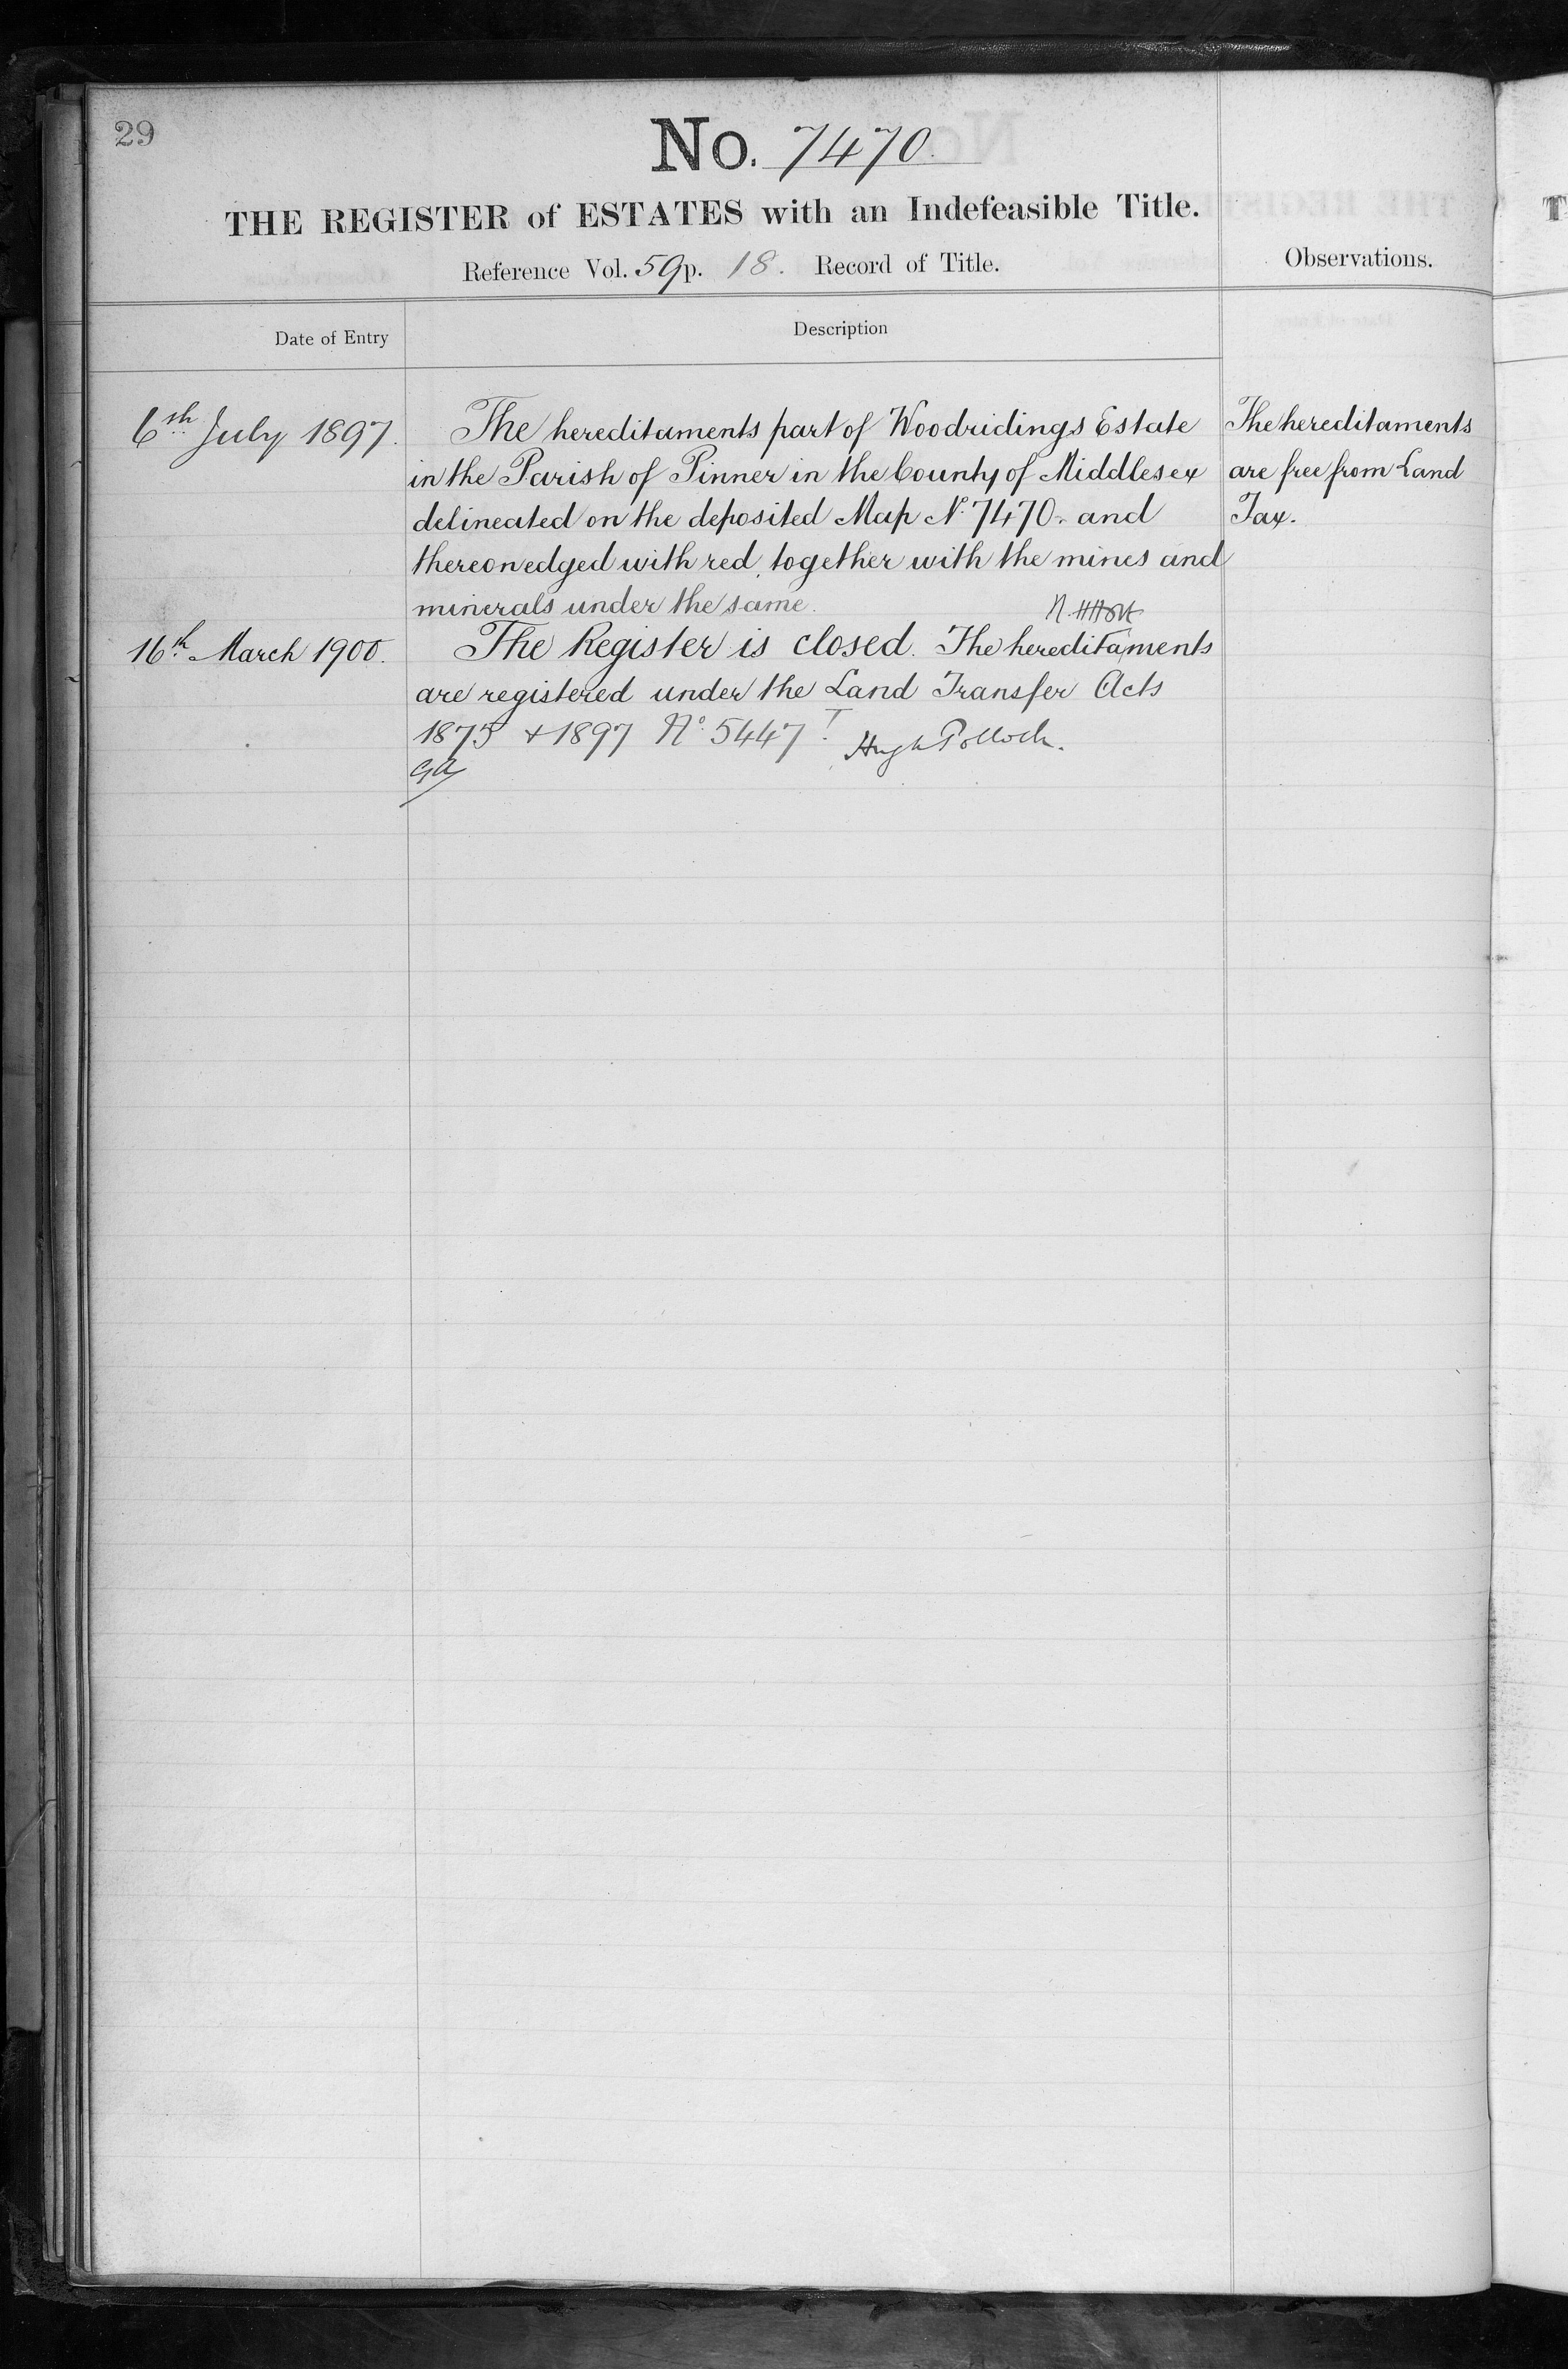 29
No. 7470.
THE REGISTER of ESTATES with an Indefeasible Title.
Reference Vol. 59 p. 18. Record of Title.
Observations.
Date of Entry
Description
6th July 1897.
The hereditaments part of Woodridings Estate
in the Parish of Pinner in the County of Middlesex
delineated on the deposited Map No. 7470. and
thereon edged with red, together with the mines and
minerals under the same.
The hereditaments
are free from Land
Tax.
16th March 1900.
The Register is closed. The hereditaments
are registered under the Land Transfer Acts
1875 + 1897 No. 5447 T
Hugh Pollock.